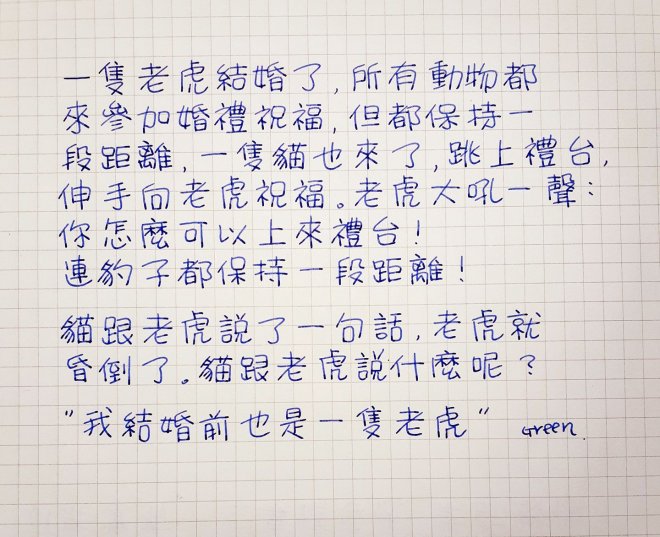 一隻老虎結婚了,所有動物都
來參加婚禮祝福,但都保持一
段距離,一隻貓也來了,跳上禮台,
伸手向老虎祝福。老虎大吼一聲:
你怎麼可以上來禮台!
連豹子都保持一段距離!
貓跟老虎說了一句話,老虎就
昏倒了。貓跟老虎說什麼呢?
"我結婚前也是一隻老虎" Green.